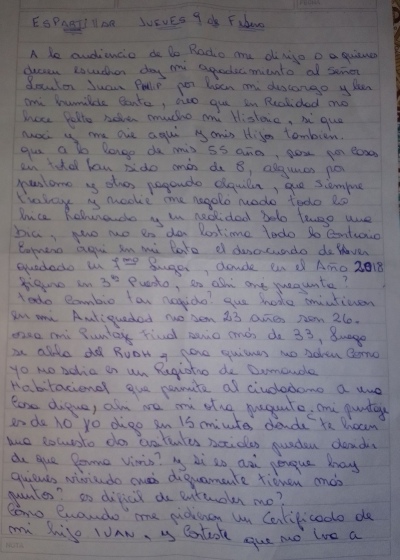 ESPARTILLAR JUEVES 9 de Febrero
A la audiencia de la Radio me dirijo o a quienes
deseen escuchar doy mi agradecimiento al Señor
Locutor Juan por hacer mi descargo y leer
mi humilde Carta, creo que en Realidad no
hace falta saber mucho mi Historia, si que
naci y me crie aqui y mis Hijos tambien.
que a lo largo de mis 55 años, pase por Casas
en total han sido más de 8, algunas por
prestamo y otras pagando alquiler, que siempre
trabaje y nadie me regalo nada todo lo
hice laburando y en realidad solo tengo una
bici, pero no es dar lastima todo lo Contrario
Expreso aqui en mi carta el desacuerdo de haver
quedado en lugar, donde en el Año 2018
figuro en 3er Puesto, es ahi me pregunto?
todo Cambio tan rapido? que hasta mintieron
en mi Antiguedad no son 23 años son 26.
osea mi Puntaje Final seria más de 33, luego
se abla del RUDH, para quienes no saben Como
yo no sabia es un Registro de Demanda
Habitacional que permite al ciudadano a una
Casa digna, ahi va mi otra pregunta, mi puntaje
es de 10 yo digo en 15 minutos donde te hacen
una encuesta dos asistentes sociales pueden decidir
de que forma vivis? y si es asi porque hay
quienes viviendo más dignamente tienen más
puntos? es dificil de entender no?
Como Cuando me pidieron un Certificado de
mi hijo IVAN, y Conteste que no iva a